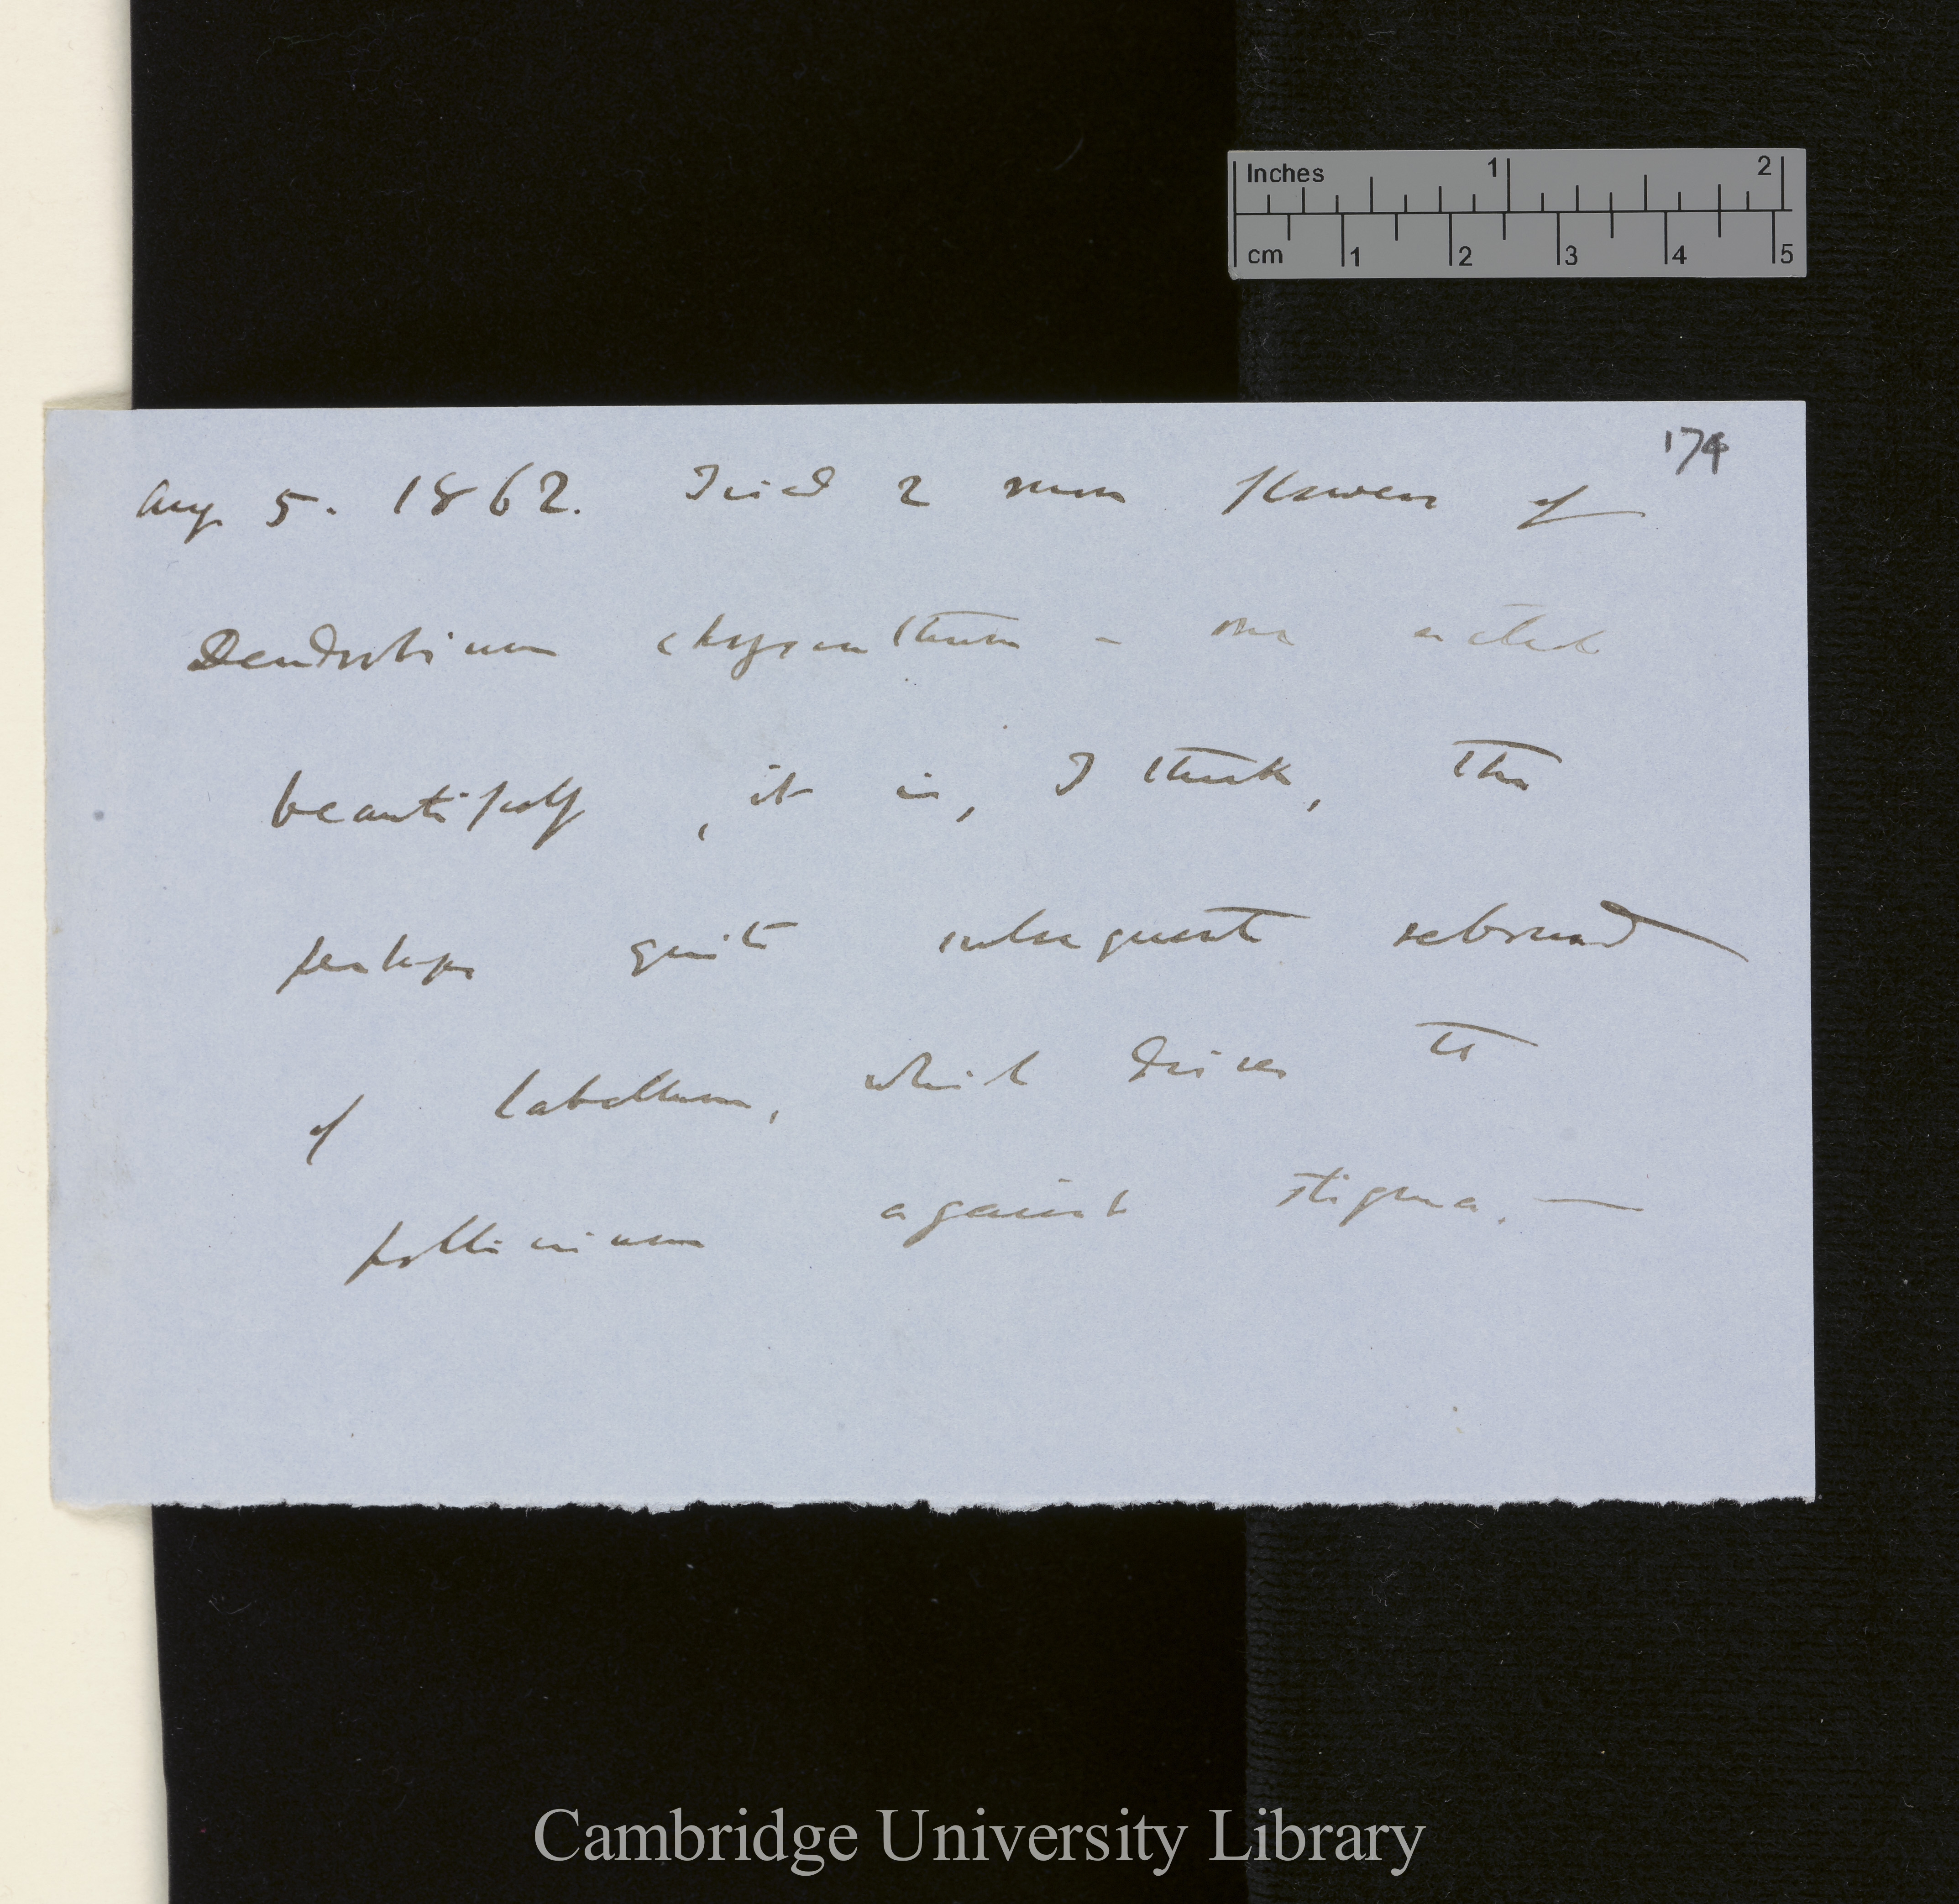 Inches 1 2
cm 1 2 3 4 5
174
Aug 5. 1862. Tried 2 more flowers of
Dendrobium chrysanthum – one acted
beautifully, it is, I think, the
perhaps quite subsequent rebound
of labellum, which drives the
pollinium against stigma. —
Cambridge University Library